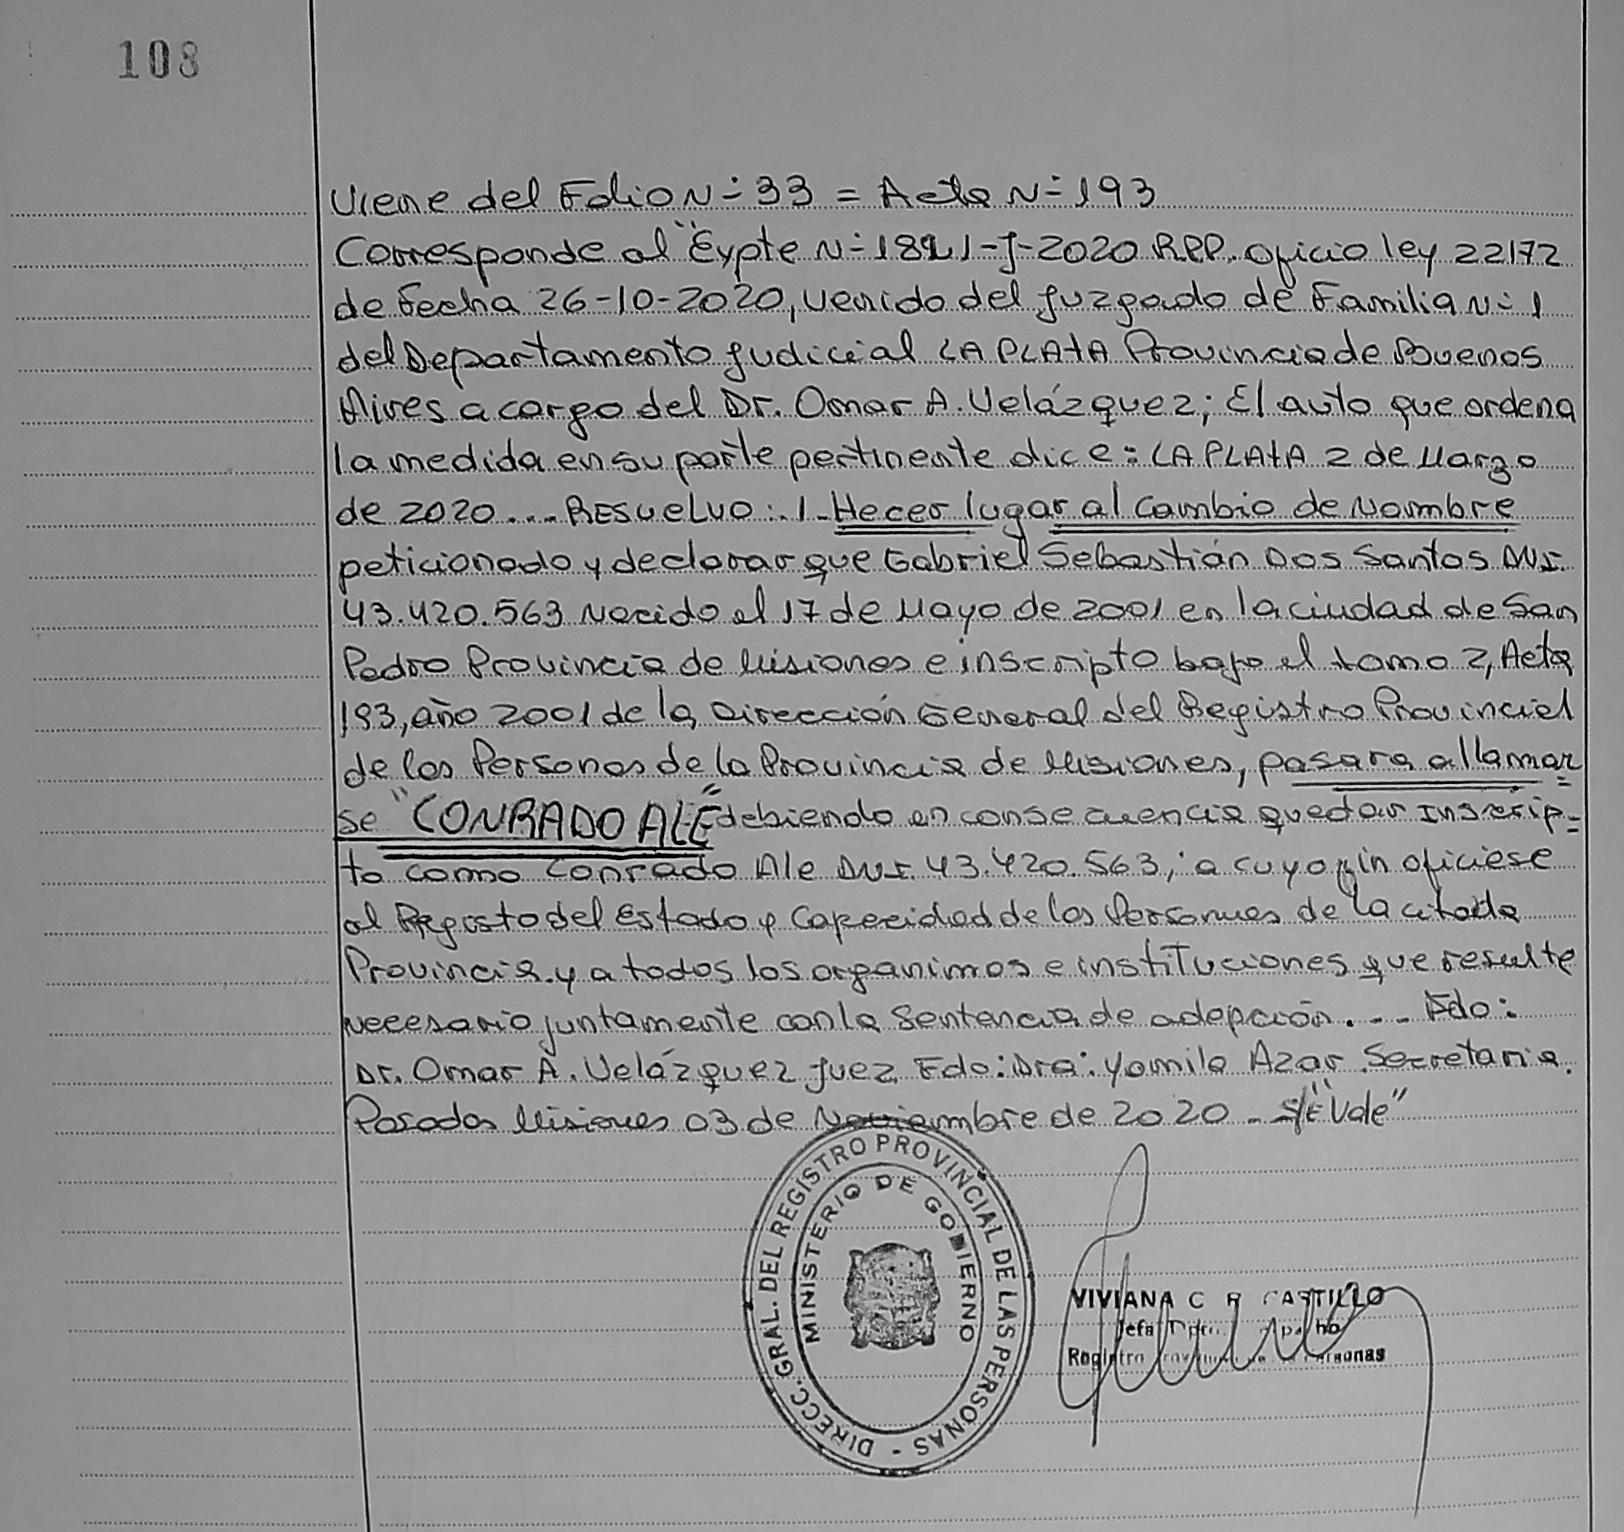 108
Viene del Folio N÷33 = Acta N÷193
Corresponde al "Expte N÷1821-J-2020 RPP. oficio ley 22172
de Fecha 26-10-2020, venido del Juzgado de Familia N÷1
del Departamento Judicial LA PLATA Provincia de Buenos
Aires a cargo del Dr. Omar A. Velázquez; El auto que ordena
la medida en su parte pertinente dice: LA PLATA 2 de Marzo
de 2020.... RESUELVO: 1- Hecer lugar al cambio de Nombre
peticionado y declarar que Gabriel Sebastián Dos Santos DNI.
43.420.563 Nacido el 17 de Mayo de 2001 en la ciudad de San
Pedro Provincia de Misiones e inscripto bajo el tomo 2, Acta
193, año 2001 de la Dirección General del Registro Provincial
de las Personas de la Provincia de Misiones, pasara a llamar=
se "CONRADO ALE" debiendo en consecuencia quedar Inscrip=
to como Conrado Ale DNI. 43.420.563, a cuyo fin oficiese
al Registo del Estado y Capacidad de las Personas de la citada
Provincia y a todos los organimos e instituciones que resulte
necesario juntamente con la Sentencia de adopción.... Fdo:
Dr. Omar A. Velázquez Juez. Fdo: Dra: Yamila Azar Secretaria.
Posadas Misiones 03 de Noviembre de 2020 - S/É Vale"
DIRECC. GRAL. DEL REGISTRO PROVINCIAL DE LAS PERSONAS -
MINISTERIO DE GOBIERNO
VIVIANA C R CASTILLO
Jefa Dpto.
Registro Personas